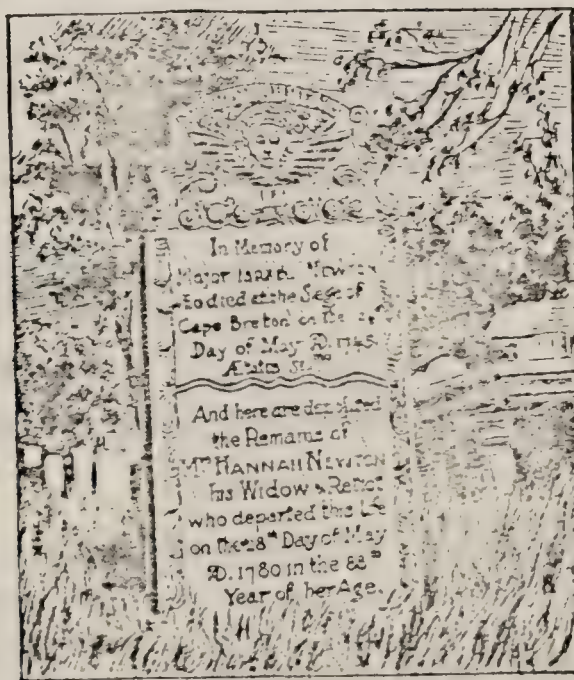 In Memory of
Major ISRAEL NEWTON
died at the Siege of
Cape Breton on the
Day of May AD. 1745.
Ætatis
And here are deposited
the Remains of
Mrs HANNAH NEWTON
his Widow & Relict
who departed this Life
on the 28th Day of May
AD. 1780 in the 88th
Year of her Age.